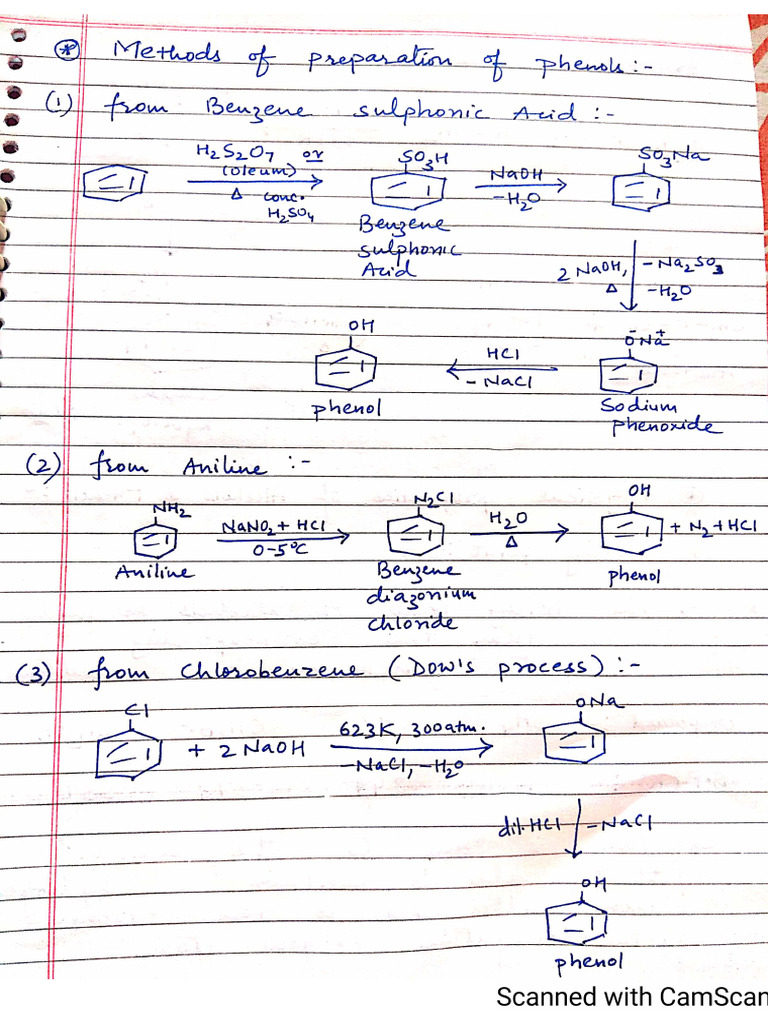 * Methods of preparation of phenols:-
(1) from Benzene sulphonic Acid :-
H2S2O7 or
(oleum)
Δ conc.
H2SO4
SO3H
Benzene
sulphonic
Acid
NaOH
-H2O
SO3Na
2 NaOH, -Na2SO3
Δ -H2O
OH
phenol
HCl
- NaCl
ŌNa+
Sodium
phenoxide
(2) from Aniline :-
NH2
Aniline
NaNO2 + HCl
0-5°C
N2Cl
Benzene
diazonium
chloride
H2O
Δ
OH
+ N2 + HCl
phenol
(3) from Chlorobenzene (Dow's process) :-
Cl
+ 2 NaOH
623K, 300 atm.
-NaCl, -H2O
ONa
dil. HCl -NaCl
OH
phenol
Scanned with CamScan